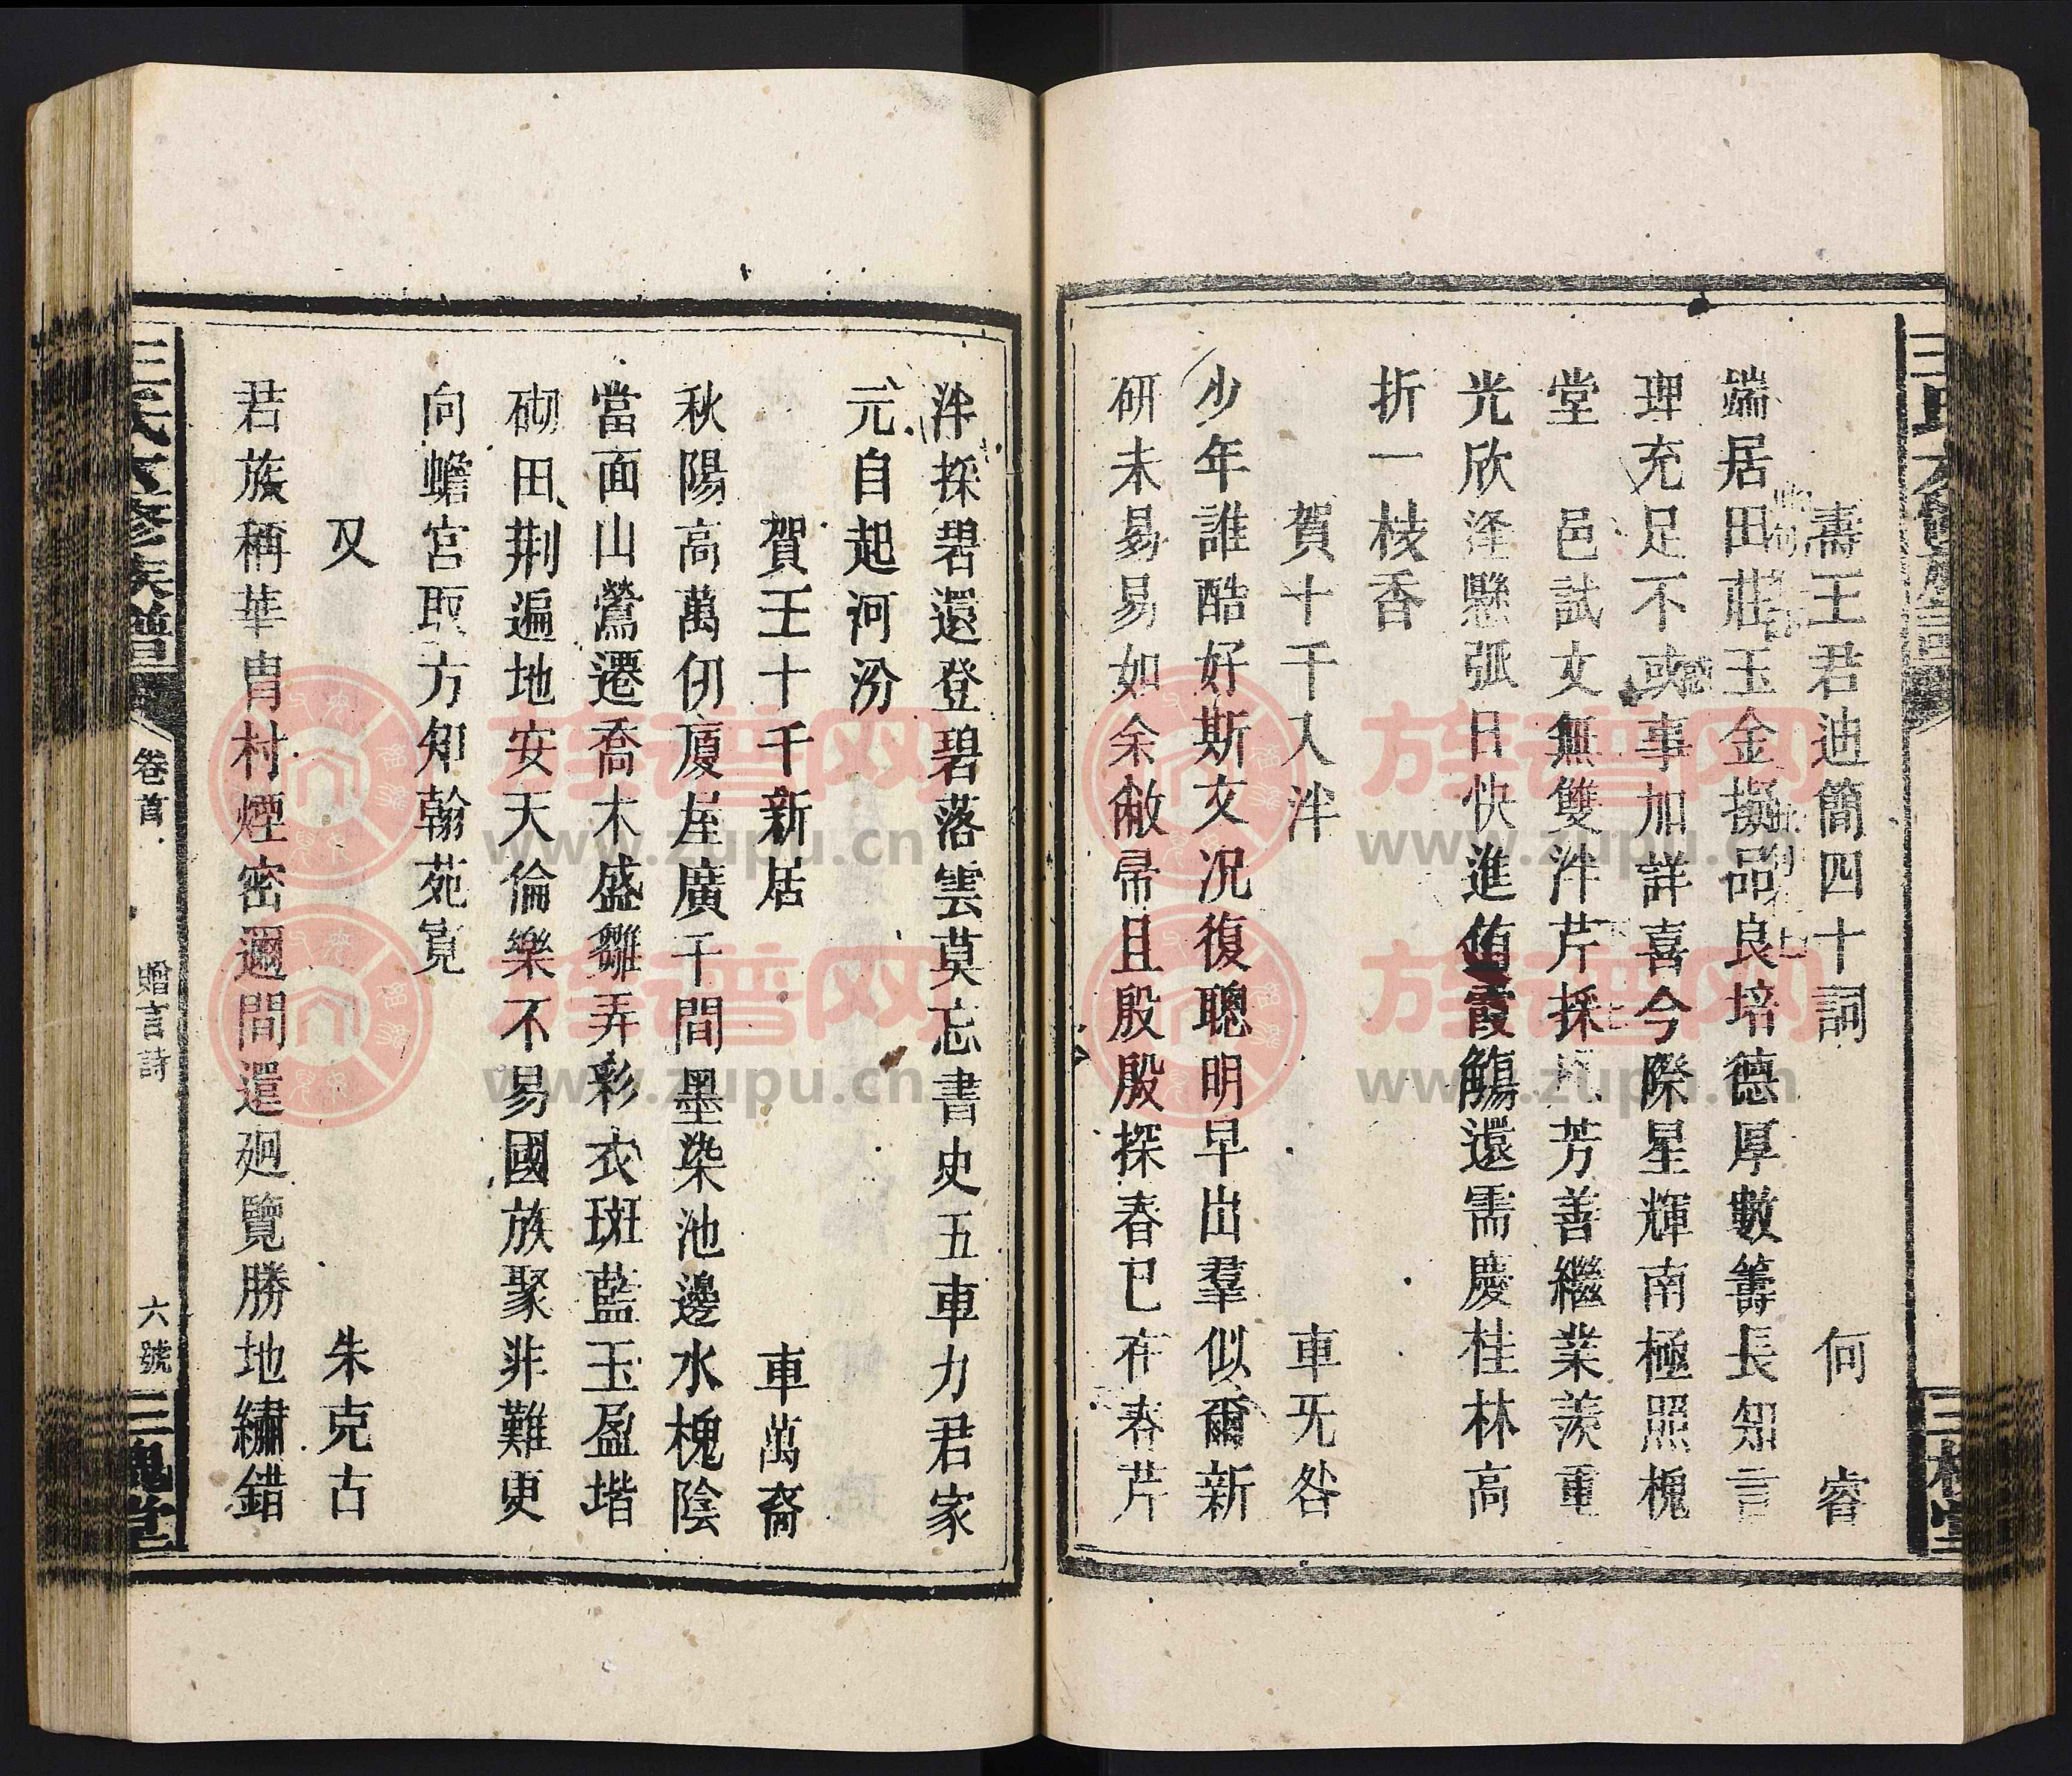 壽王君迪簡四十詞 何睿
端居田莊玉金擬品良培德厚數籌長知言
理充足不或事加詳喜今際星輝南極照槐
堂 邑試文無雙泮芹採 芳善繼業羨重
光欣逢懸弧日快進 霞觴還需慶桂林高
折一枝香
賀十千入泮 車旡咎
少年誰酷好斯文况復聰明早出羣似爾新
研未易易如余敝帚且殷殷探春已布春芹
泮採碧還登碧落雲莫忘書史五車力君家
元自起河汾
賀王十千新居 車萬裔
秋陽高萬仞廈屋廣千間墨染池邊水槐陰
當面山鶯遷喬木盛雛弄彩衣斑藍玉盈堦
砌田荆遍地安天倫樂不易國族聚非難更
向蟾宮取方知翰苑寬
又 朱克古
君族稱華胄村煙密邇間還廻覽勝地繡錯
王氏六修族譜 卷首 贈言詩 六號 三槐堂
族譜网
www.zupu.cn
族譜网
www.zupu.cn
族譜网
www.zupu.cn
族譜网
www.zupu.cn